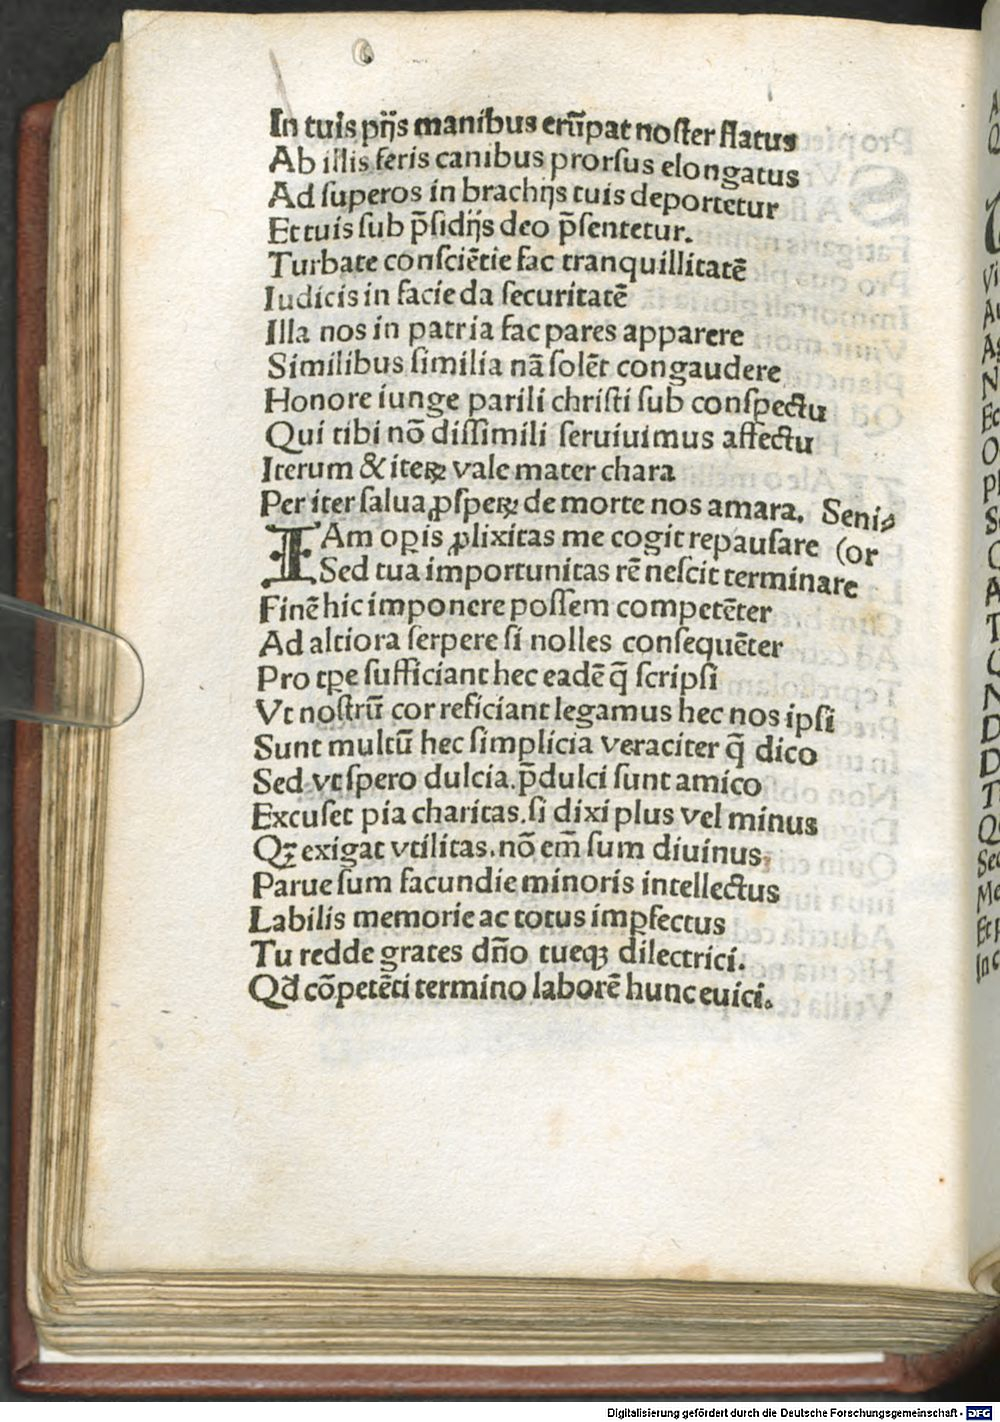 In tuis pijs manibus erūpat noſter flatus
Ab illis feris canibus prorſus elongatus
Ad ſuperos in brachijs tuis deportetur
Et tuis ſub p̄ſidijs deo p̄ſentetur.
Turbate conſciētie fac tranquillitatē
Iudicis in facie da ſecuritatē
Illa nos in patria fac pares apparere
Similibus ſimilia nā ſolēt congaudere
Honore iunge parili chriſti ſub conſpectu
Qui tibi nō diſſimili ſeruiuimus affectu
Iterum & iteꝝ vale mater chara
Per iter ſalua ꝓſpeꝝ de morte nos amara. Seni⸗
IAm oꝑis ꝓlixitas me cogit repauſare (or
Sed tua importunitas rē neſcit terminare
Finē hic imponere poſſem competēter
Ad altiora ſerpere ſi nolles conſequēter
Pro tꝑe ſufficiant hec eadē q̄ ſcripſi
Vt noſtrū cor reficiant legamus hec nos ipſi
Sunt multū hec ſimplicia veraciter q̄ dico
Sed vt ſpero dulcia.p̄dulci ſunt amico
Excuſet pia charitas.ſi dixi plus vel minus
Qꝫ exigat vtilitas.nō em̄ ſum diuinus.
Parue ſum facundie minoris intellectus
Labilis memorie ac totus imꝑfectus
Tu redde grates dn̄o tueqꝫ dilectrici.
Qd̄ cōpetēti termino laborē hunc euici.
Digitalisierung gefördert durch die Deutsche Forschungsgemeinschaft - DFG